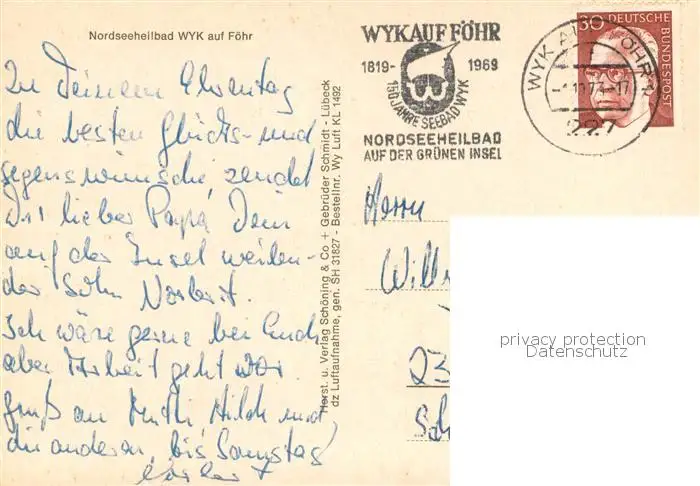 Nordseeheilbad WYK auf Föhr
Zu Deinem Ehrentag
die besten Glücks- und
segenswünsche, sendet
Dir lieber Papa, Dein
auf der Insel weilen-
der Sohn Norbert.
Ich wäre gerne bei Euch
aber Arbeit geht vor.
Gruß an Mutti, Hilde und
die anderen, bis Samstag
Norbert
Horst. u. Verlag Schöning & Co + Gebrüder Schmidt - Lübeck
dz Luftaufnahme, gen. SH 31827 - Bestellnr. Wy Luft KL 1492
WYK AUF FÖHR
1819- 1969
150 JAHRE SEEBAD WYK
NORDSEEHEILBAD
AUF DER GRÜNEN INSEL
WYK AUF FÖHR
227
30 DEUTSCHE
BUNDESPOST
Herrn
Will
23
Sch
privacy protection
Datenschutz